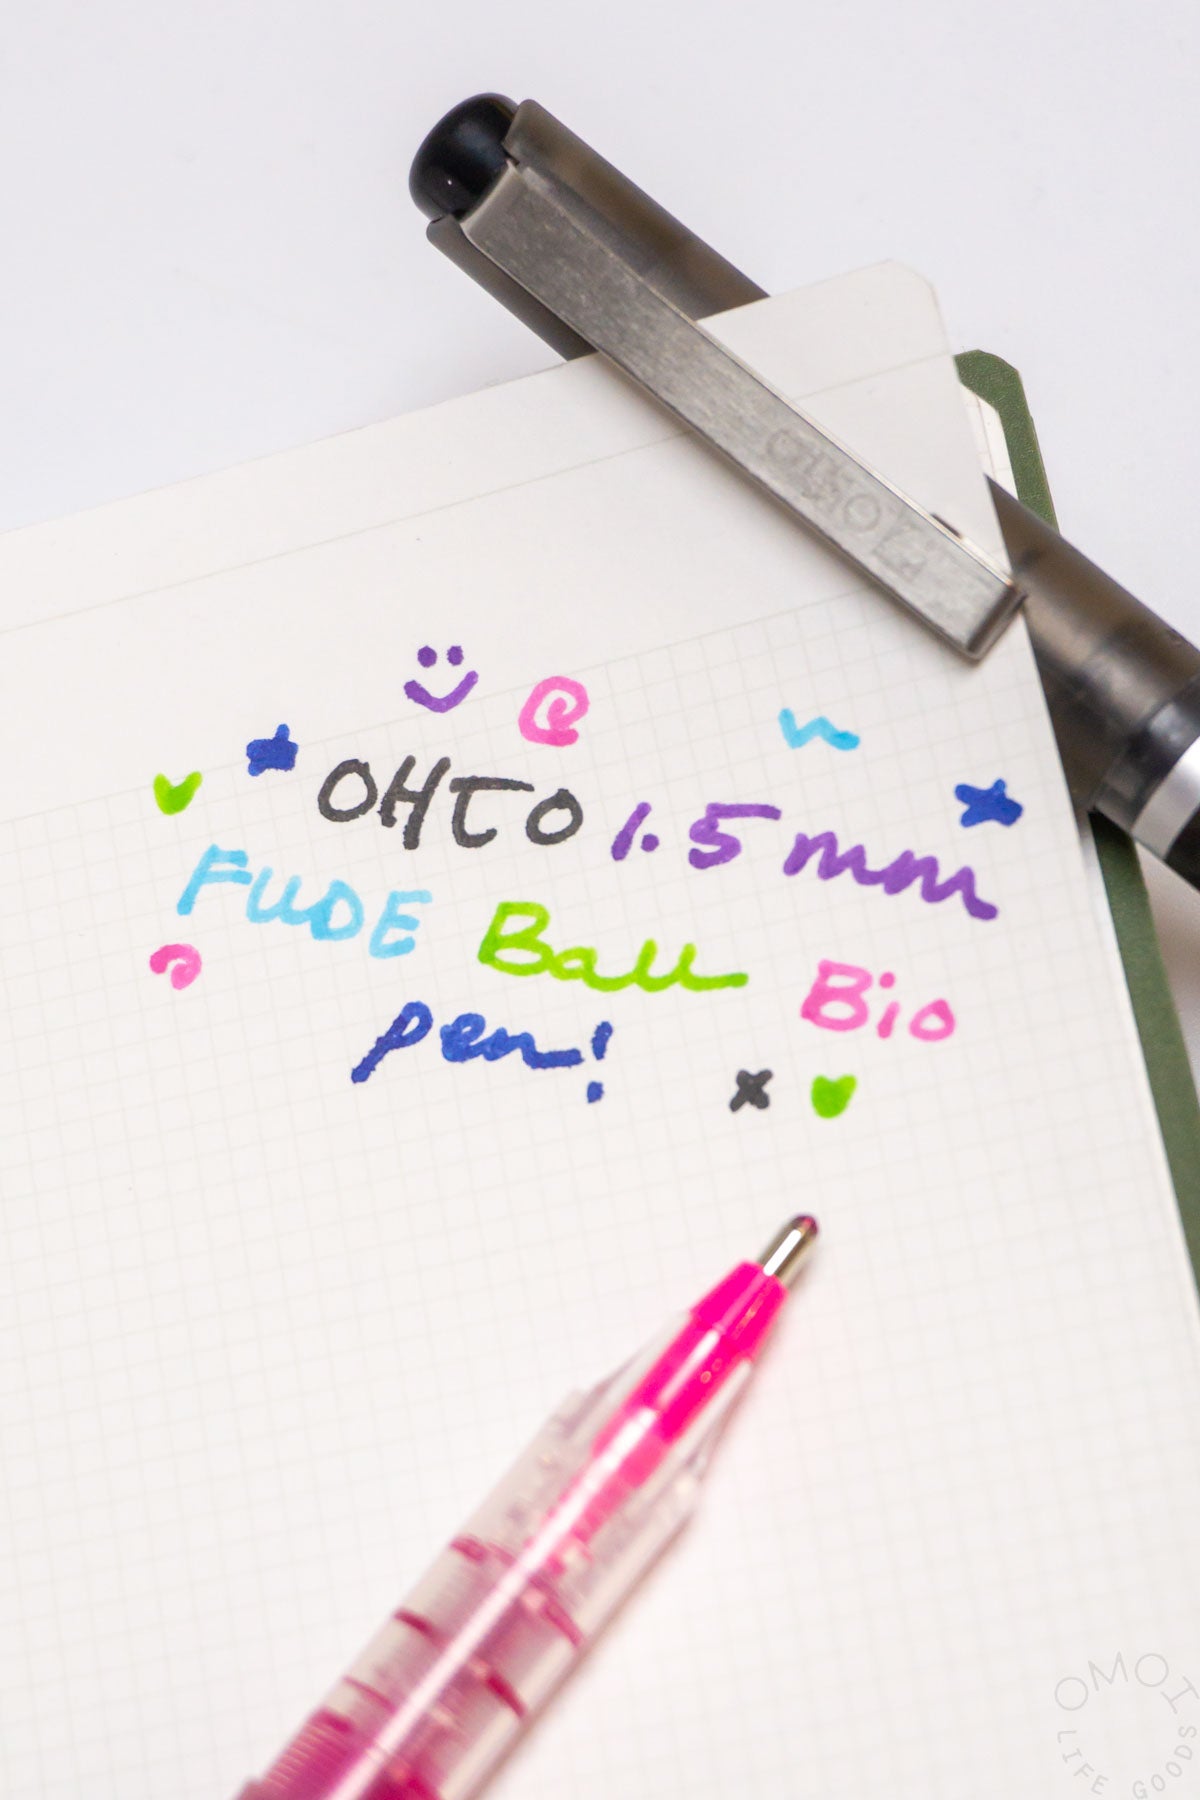 OHTO
OHTO 1.5mm
FUDE Ball Bio
pen!
OMOI
LIFE GOODS